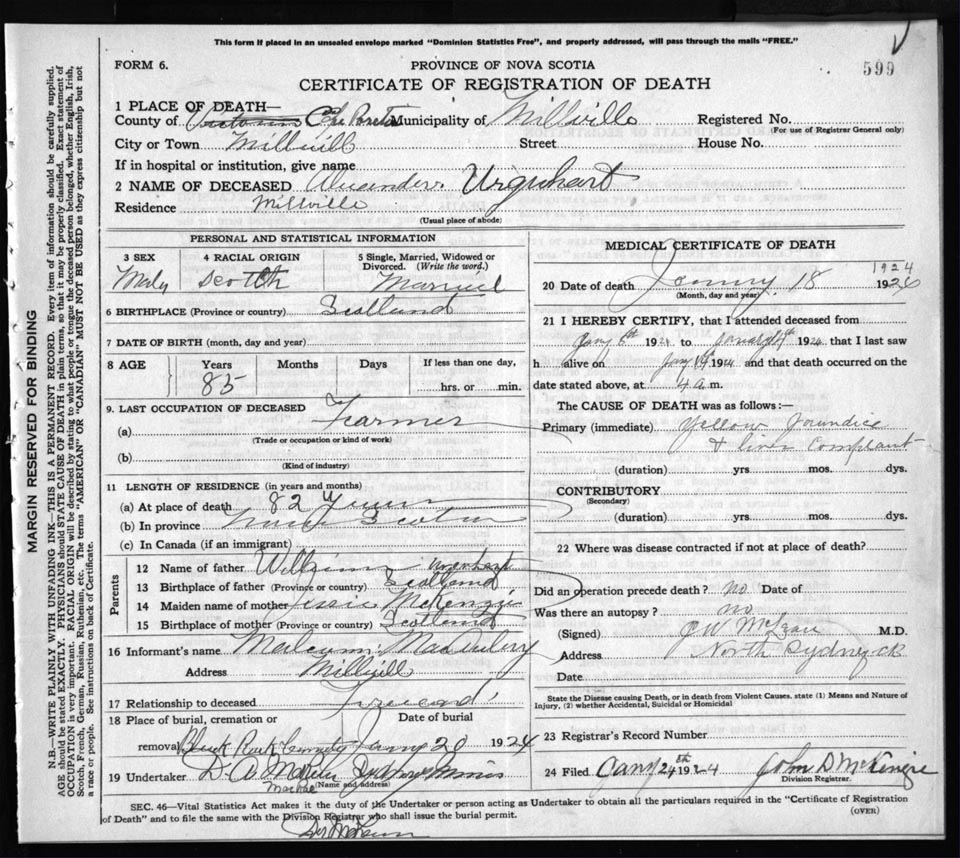 This form if placed in an unsealed envelope marked "Dominion Statistics Free", and properly addressed, will pass through the mails "FREE."
FORM 6.
PROVINCE OF NOVA SCOTIA
599
CERTIFICATE OF REGISTRATION OF DEATH
1 PLACE OF DEATH—
County of Victoria Municipality of Millville Registered No.
(For use of Registrar General only)
City or Town Millvill Street House No.
If in hospital or institution, give name
2 NAME OF DECEASED Alexander Urquhart
Residence Millville
(Usual place of abode)
PERSONAL AND STATISTICAL INFORMATION
3 SEX 4 RACIAL ORIGIN 5 Single, Married, Widowed or Divorced. (Write the word.)
Male Scotch Married
6 BIRTHPLACE (Province or country) Scotland
7 DATE OF BIRTH (month, day and year)
8 AGE Years Months Days If less than one day,
85 hrs. or min.
9. LAST OCCUPATION OF DECEASED Farmer
(a)
(Trade or occupation or kind of work)
(b)
(Kind of industry)
11 LENGTH OF RESIDENCE (in years and months)
(a) At place of death 82 Years
(b) In province Nova Scotia
(c) In Canada (if an immigrant)
Parents
12 Name of father William Urquhart
13 Birthplace of father (Province or country) Scotland
14 Maiden name of mother Jessie McKenzie
15 Birthplace of mother (Province or country) Scotland
16 Informant's name Malcum
Address Millvill
17 Relationship to deceased Friend
18 Place of burial, cremation or removal Black Rock Date of burial Jany 20 1924
19 Undertaker D. A. Sydney Mines
(Name and address)
MEDICAL CERTIFICATE OF DEATH
1924
20 Date of death 18 192
(Month, day and year)
21 I HEREBY CERTIFY, that I attended deceased from
Jany 192 to 1924 that I last saw
h alive on Jany 1924 and that death occurred on the
date stated above, at 4 a m.
The CAUSE OF DEATH was as follows:—
Primary (immediate) Yellow Jaundice
& liver Complaint
(duration) yrs. mos. dys.
CONTRIBUTORY
(Secondary)
(duration) yrs. mos. dys.
22 Where was disease contracted if not at place of death?
Did an operation precede death? no Date of
Was there an autopsy? no
(Signed) M.D.
Address North Sydney
Date
State the Disease causing Death, or in death from Violent Causes, state (1) Means and Nature of Injury, (2) whether Accidental, Suicidal or Homicidal
23 Registrar's Record Number
24 Filed Jany 24th 1924 John D McKenzie
Division Registrar.
SEC. 46—Vital Statistics Act makes it the duty of the Undertaker or person acting as Undertaker to obtain all the particulars required in the "Certificate of Registration
of Death" and to file the same with the Division Registrar who shall issue the burial permit.
(OVER)
MARGIN RESERVED FOR BINDING
N.B.—WRITE PLAINLY WITH UNFADING INK—THIS IS A PERMANENT RECORD. Every item of information should be carefully supplied.
AGE should be stated EXACTLY. PHYSICIANS should STATE CAUSE OF DEATH in plain terms, so that it may be properly classified. Exact statement of
OCCUPATION is very important. RACIAL ORIGIN will be described by stating to what people or tongue the deceased person belonged, whether English, Irish,
Scotch, French, German, Russian, Ruthenian, etc. The terms "AMERICAN" OR "CANADIAN" MUST NOT BE USED as they express citizenship but not
a race or people. See instructions on back of Certificate.